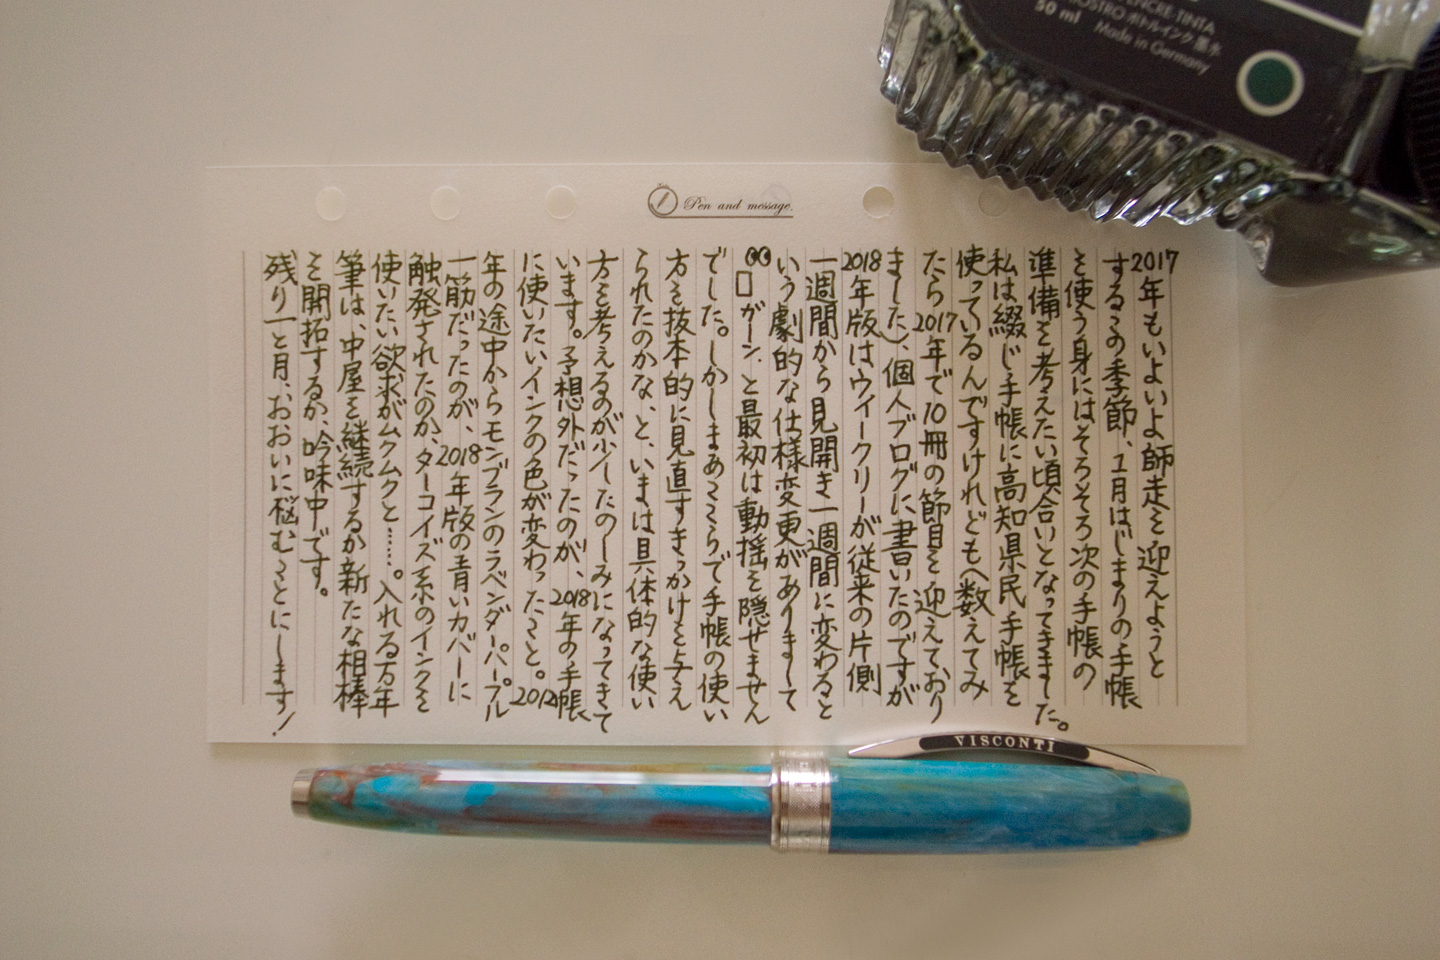 ENCRE·TINTA
INCHIOSTRO ボトルインク 墨水
50 ml Made in Germany
Pen and message.
2017年もいよいよ師走を迎えようと
するこの季節、1月はじまりの手帳
を使う身にはそろそろ次の手帳の
準備を考えたい頃合いとなってきました。
私は綴じ手帳に高知県民手帳を
使っているんですけれども(数えてみ
たら2017年で10冊の節目を迎えており
ました)、個人ブログに書いたのですが
2018年版はウイークリーが従来の片側
一週間から見開き一週間に変わると
いう劇的な仕様変更がありまして
ガーン、と最初は動揺を隠せません
でした。しかしまあここらで手帳の使い
方を抜本的に見直すきっかけを与え
られたのかな、と、いまは具体的な使い
方を考えるのが少したのしみになってきて
います。予想外だったのが、2018年の手帳
に使いたいインクの色が変わったこと。2012
年の途中からモンブランのラベンダーパープル
一筋だったのが、2018年版の青いカバーに
触発されたのか、ターコイズ系のインクを
使いたい欲求がムクムクと……。入れる万年
筆は、中屋を継続するか新たな相棒
を開拓するか、吟味中です。
残り一と月、おおいに悩むことにします!
VISCONTI